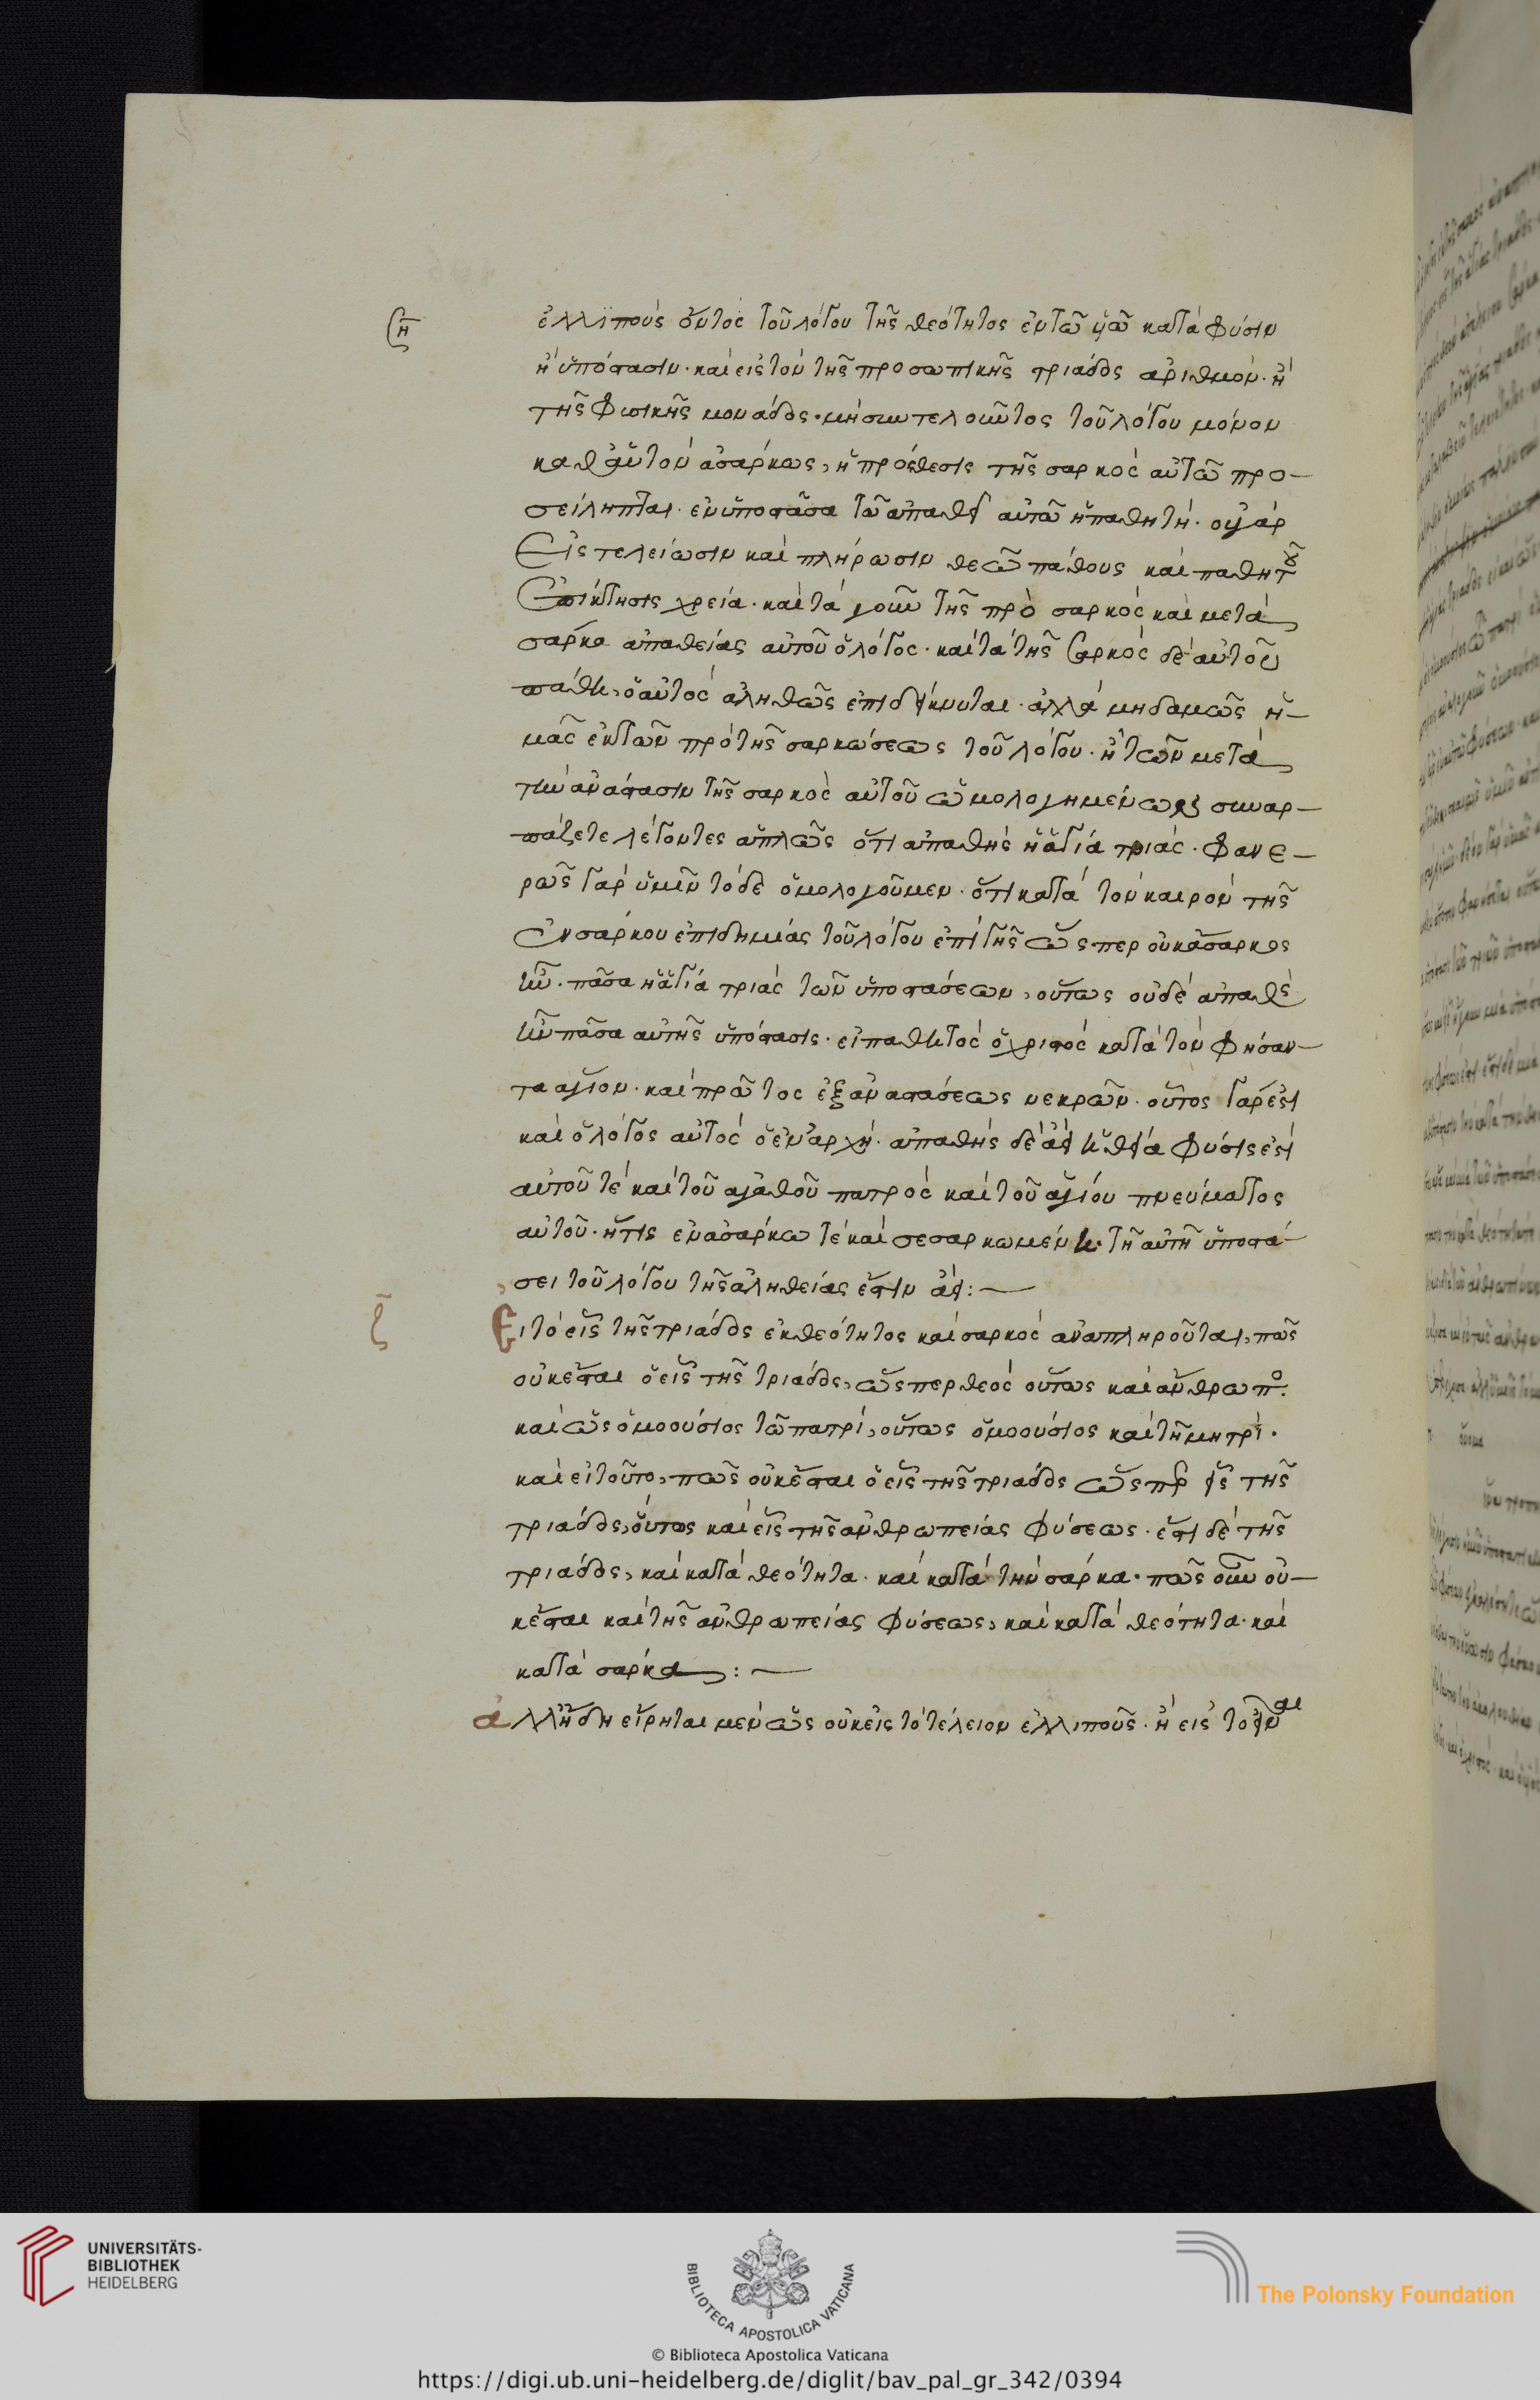 ϛη
ἐλλιποῦς ὄντος τοῦ λόγου τῆς θεότητος ἐν τῶ υἱῶ κατὰ φύσιν
ἢ ὑπόστασιν· καὶ εἰς τὸν τῆς προσωπικῆς τριάδος ἀριθμὸν· ἢ
τῆς φυσικῆς μονάδος· μὴ συντελοῦντος τοῦ λόγου μόνου
καθ' αὑτὸν ἀσάρκως, ἡ πρόσθεσις τῆς σαρκὸς αὐτῶ προ-
σείληπται· ἐνυποστᾶσα τῶ ἀπαθεῖ αὐτῶ ἡ παθητή· οὐ γὰρ
εἰς τελείωσιν καὶ πλήρωσιν θεῶ πάθους καὶ παθητοῦ
ἐπίκτησις χρεία· καὶ τὰ γοῦν τῆς πρὸ σαρκὸς καὶ μετὰ
σάρκα ἀπαθείας αὐτοῦ ὁ λόγος· καὶ τὰ τῆς σαρκὸς δὲ αὐτοῦ
πάθη, ὁ αὐτὸς ἀληθῶς ἐπιδείκνυται· ἀλλὰ μηδαμῶς ἡ-
μᾶς ἐκ τῶν πρὸ τῆς σαρκώσεως τοῦ λόγου· ἢ τῶν μετὰ
τὴν ἀνάστασιν τῆς σαρκὸς αὐτοῦ ὡμολογημένως συναρ-
πάζετε λέγοντες ἁπλῶς ὅτι ἀπαθὴς ἡ ἁγία τριάς· φανε-
ρῶς γὰρ ὑμῖν τόδε ὁμολογοῦμεν· ὅτι κατὰ τὸν καιρὸν τῆς
ἐνσάρκου ἐπιδημίας τοῦ λόγου ἐπὶ γῆς ὥσπερ οὐκ ἄσαρκος
ἦν· πᾶσα ἡ ἁγία τριὰς τῶν ὑποστάσεων, οὕτως οὐδὲ ἀπαθὴς
ἦν πᾶσα αὐτῆς ὑπόστασις· εἰ παθητὸς ὁ χριστὸς κατὰ τὸν φήσαν-
τα ἅγιον· καὶ πρῶτος ἐξ ἀναστάσεως νεκρῶν· οὗτος γάρ ἐστι
καὶ ὁ λόγος αὐτὸς ὁ ἐν ἀρχῆ· ἀπαθὴς δὲ ἀεὶ ἡ θεία φύσις ἐστὶ
αὐτοῦ τὲ καὶ τοῦ ἀγαθοῦ πατρὸς καὶ τοῦ ἁγίου πνεύματος
αὐτοῦ· ἥτις ἐν ἀσάρκω τὲ καὶ σεσαρκωμένη· τῆ αὐτῆ ὑποστά-
σει τοῦ λόγου τῆς ἀληθείας ἐστὶν ἀεί:—
ζ
Εἰ τὸ εἷς τῆς τριάδος ἐκ θεότητος καὶ σαρκὸς ἀναπληροῦται, πῶς
οὐκ ἔσται ὁ εἷς τῆς τριάδος, ὥσπερ θεὸς οὕτως καὶ ἄνθρωπος·
καὶ ὡς ὁμοούσιος τῶ πατρὶ, οὕτως ὁμοούσιος καὶ τῆ μητρί·
καὶ εἰ τοῦτο, πῶς οὐκ ἔσται ὁ εἷς τῆς τριάδος ὥσπερ εἷς τῆς
τριάδος, οὕτως καὶ εἷς τῆς ἀνθρωπείας φύσεως· ἔστι δὲ τῆς
τριάδος, καὶ κατὰ θεότητα· καὶ κατὰ τὴν σάρκα· πῶς οὖν οὐ-
κ ἔσται καὶ τῆς ἀνθρωπείας φύσεως, καὶ κατὰ θεότητα· καὶ
κατὰ σάρκα:—
ἀλλ' ἤδη εἴρηται μὲν ὡς οὐκ εἰς τὸ τέλειον ἐλλιποῦς· ἢ εἰς τὸ εἶναι
UNIVERSITÄTS-
BIBLIOTHEK
HEIDELBERG
BIBLIOTECA APOSTOLICA VATICANA
The Polonsky Foundation
© Biblioteca Apostolica Vaticana
https://digi.ub.uni-heidelberg.de/diglit/bav_pal_gr_342/0394